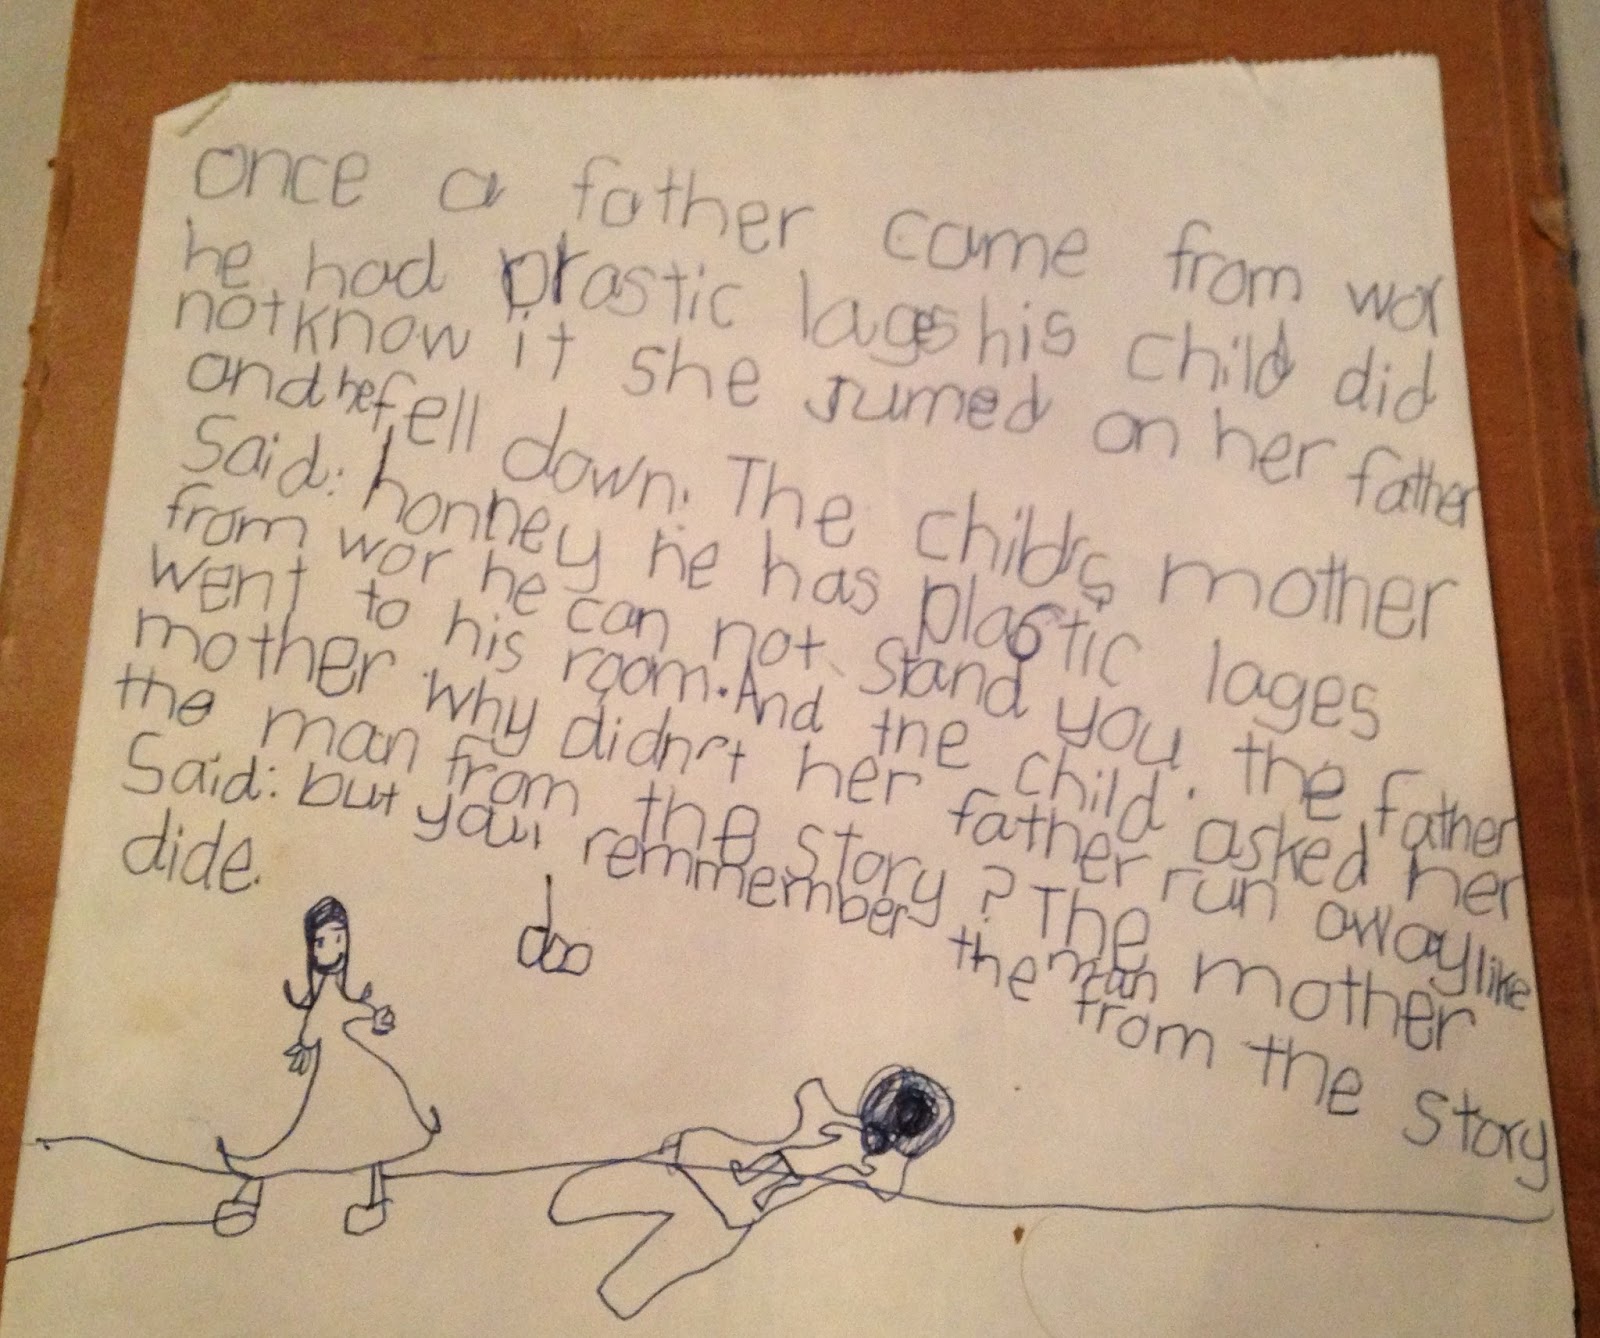 once a father came from wor
he had plastic lages his child did
not know it she jumed on her father
and he fell down. The childs mother
Said: honney he has plastic lages
from wor he can not stand you. the father
went to his room. And the child. asked her
mother why didn't her father run away like
the man from the story? The mother
Said: but you remmember the man the from the story
dide.